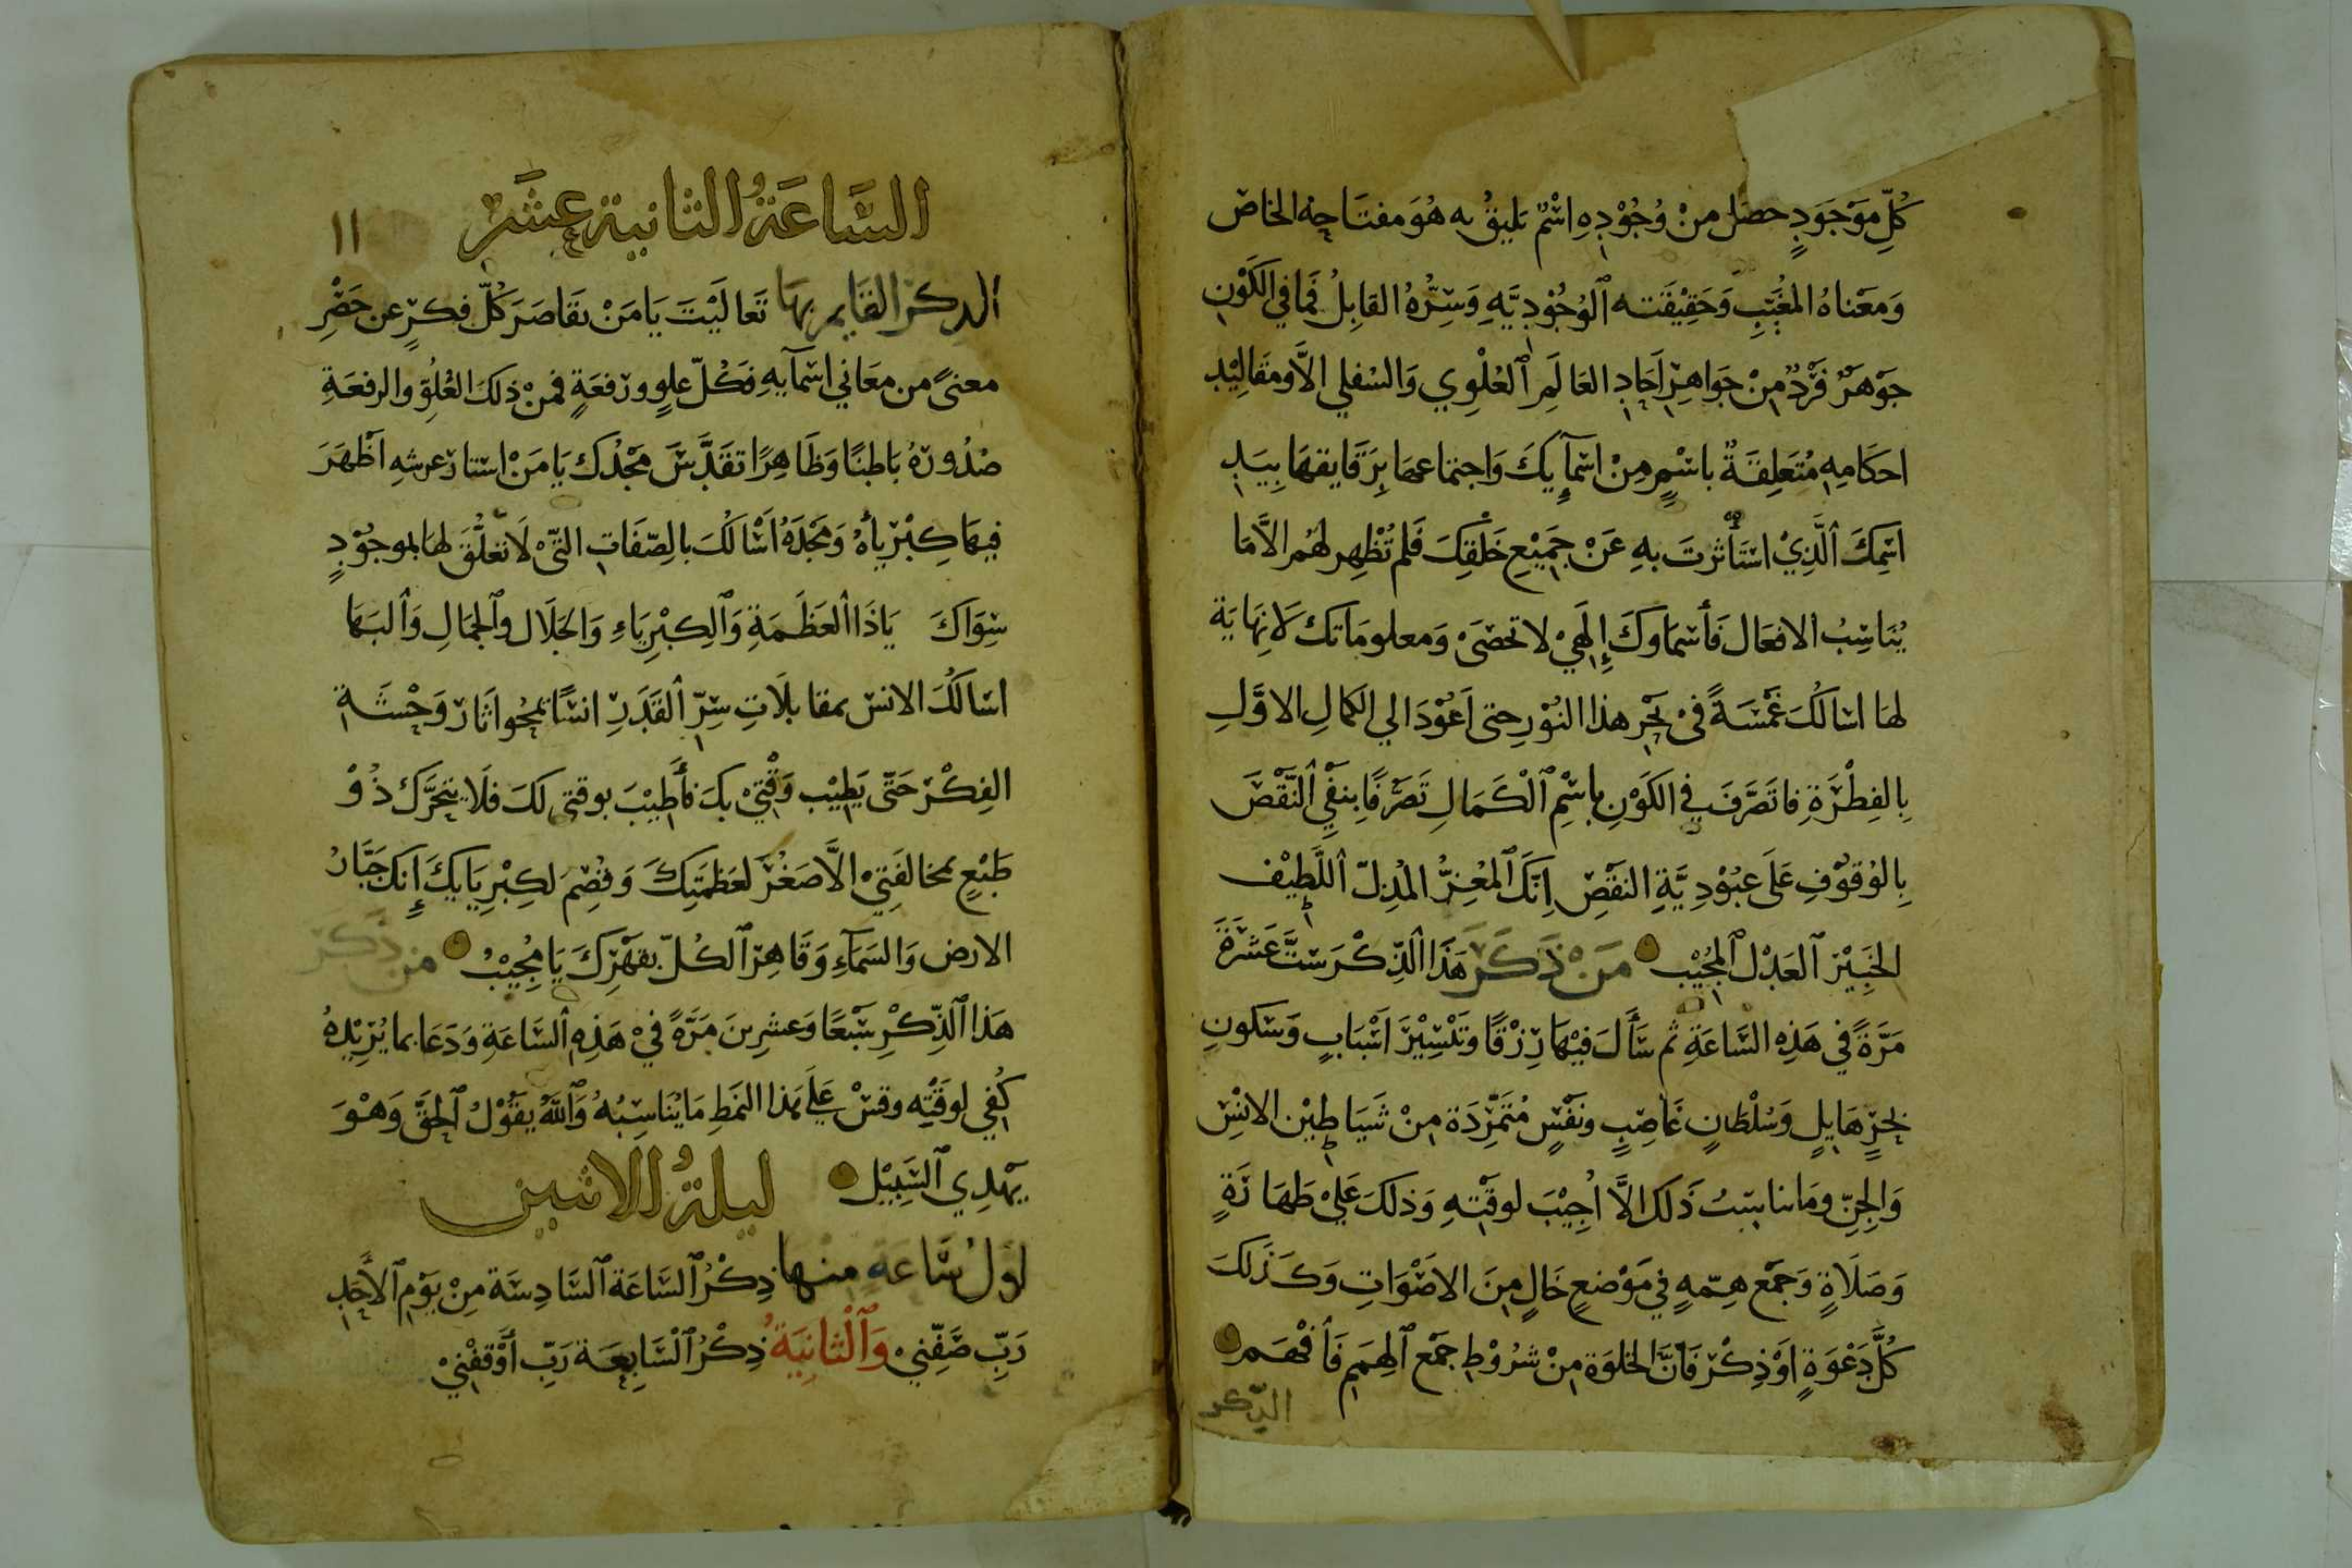 كُلِّ مَوْجَوَدٍ حصَل منْ وُجُوْدِهِ اسْمٌ يَليقُ به هُوَ مفتَاحِهُ الخاصّ
وَمعَناهُ المُغَيَّبِ وَحَقِيْقَته ٱلوُجُوْدِيَّهِ وَسِرُّهُ القابِلُ فَما في الكَوْنِ
جَوْهَرٌ فَرْدٌ مِنْ جَوَاهِرِ اَحَادِ العَالَمِ ٱلعُلْوِي وَالسُفلي الاَّ ومَقَالِيْدِ
احكَامِهِ مُتَعَلِقَةٌ باسْمٍ مِنْ اسْمَآيِكَ وَاجتماعهَا بِرَقَايقهَا بِيَدِ
اسْمِكَ ٱلَّذِيْ اسْتَأثرتَ بهِ عَنْ جَمِيْعِ خَلْقِكَ فَلم تُظْهِر لهُم الاَّمَا
يُنَاسِبُ الافعَال فَأسْمَاوكَ إِلَهيْ لا تحصَىَ وَمعلومَاتك لاَ نِهَايَة
لهَا اسْالكَ غَمْسَةً فيْ بَحْرِ هذا النُوْرِ حتى اَعُوْدَ الي الكمالِ الاوَّلِ
بِالفِطْرَةِ فاتَصَرَّفَ في الكَوْنِ بِاسْمِ ٱلْكَمَالِ تَصَرُّفًا بِنفْيِ ٱلنَّقْصَ
بِالوُقوْفِ عَلَى عبُوْدِيَّةِ النقَصِ اِنَّكَ ٱلمُعِزُّ المُذِلّ اَللَّطِيْف
الخَبِيْرِ ٱلعَدْل ٱلمُجِيْب مَنْ ذَكَرَ هَذَا ٱلذِّكْرَ سِتَّ عَشَرَةَ
مَرَّةً في هَذِهِ السَّاعَةِ ثم سَأَلَ فيْهَا رِزْقًا وَتَيْسِيْرَ اَسْبَابٍ وَسَكونِ
بَحرٍ هَايلٍ وَسُلْطَانٍ غَاصِبٍ ونَفْسٍ مُتَمَرِّدَة مِنْ شَيَاطِيْن الانْسِ
وَالجِنِّ ومَا يناسبُ ذَلَك الاَّ اُجِيْبَ لوقْتِهِ وَذلكَ عَليْ طَهَارَةٍ
وَصَلَاةٍ وَجَمْع هِمّهٍ في مَوْضعٍ خَالٍ مِنَ الاصْوَاتِ وَكَذَلكَ
كُلُّ دَعْوَةٍ اَوْ ذِكْر فَاَنَّ الخلوَة مِنْ شرُوْطِ جمْع ٱلهِمَمِ فَٱفْهَم
الذّكر
١١
السَّاعَةُ الثانية عشَر
الذكر القايم بهَا تَعالَيْتَ يَامَنْ تقَاصَرَ كُلّ فكرٍ عن حَصْرِ
معنىً من معَاني اسْمآيهِ فكُلّ علوٍ ورفعَةٍ فمنْ ذلكَ العُلُوّ والرفعَةِ
صُدُورهُ بَاطِنًا وَظَاهِرًا تقَدَّسَ مَجْدُك يَا مَنْ استتارَ عرشهِ اَظْهَرَ
فيهَا كِبْريأهُ وَمَجْدَهُ اَسْالكَ بالصِّفَاتِ التّىْ لَا تعَلُّقَ لهَا بموجُوْدٍ
سِوَاكَ يَاذَا ٱلعَظَمَةِ وَٱلكِبْرِيَاءِ وَالجَلَال وٱلجمَالِ وَٱلبهَا
اسْالَكَ الانس بمقابلَاتِ سِرِّ ٱلقَدَرِ انسًا يمحُوا اثَار وَحْشَة
الفِكْر حَتَّى يَطِيْب وَقْتِيْ بكَ فأَطِيْبَ بوقتى لكَ فلَا يتحَرَّك ذُوْ
طَبْعٍ بمخالفَتِيْ الاَّ صَغُرَ لعَظمَتِكَ وَقُصِمَ لكِبْرِيَايكَ إِنكَ جَبَّارُ
الارض وَالسَمَآءِ وَقَاهِر ٱلكُلّ بقهْرِكَ يَا مُجِيْبُ من ذَكَرَ
هَذا ٱلذِّكْرِ سَبْعًا وَعشرِينَ مَرَّةً فيْ هَذِهِ ٱلسَّاعَةِ وَدَعَا بما يُرْيدُهُ
كُفي لوقْتِه وقسْ عَلَى هَذا النمَطِ مَا يُنَاسِبُهُ وَٱللهُ يقُوْلُ ٱلحَقَّ وَهوَ
يَهْدِي ٱلسَّبِيْل ليلةُ الاثنين
اول سَاعَةٍ منها ذِكْرُ ٱلسَّاعَة ٱلسَّادِسَة مِنْ يوَمِ ٱلأَحَدِ
رَبِّ صَفِّنِيْ وَٱلْثَانِيَةُ ذِكْرُ ٱلْسَّابِعَة رَبِّ أَوْقِفْنيْ